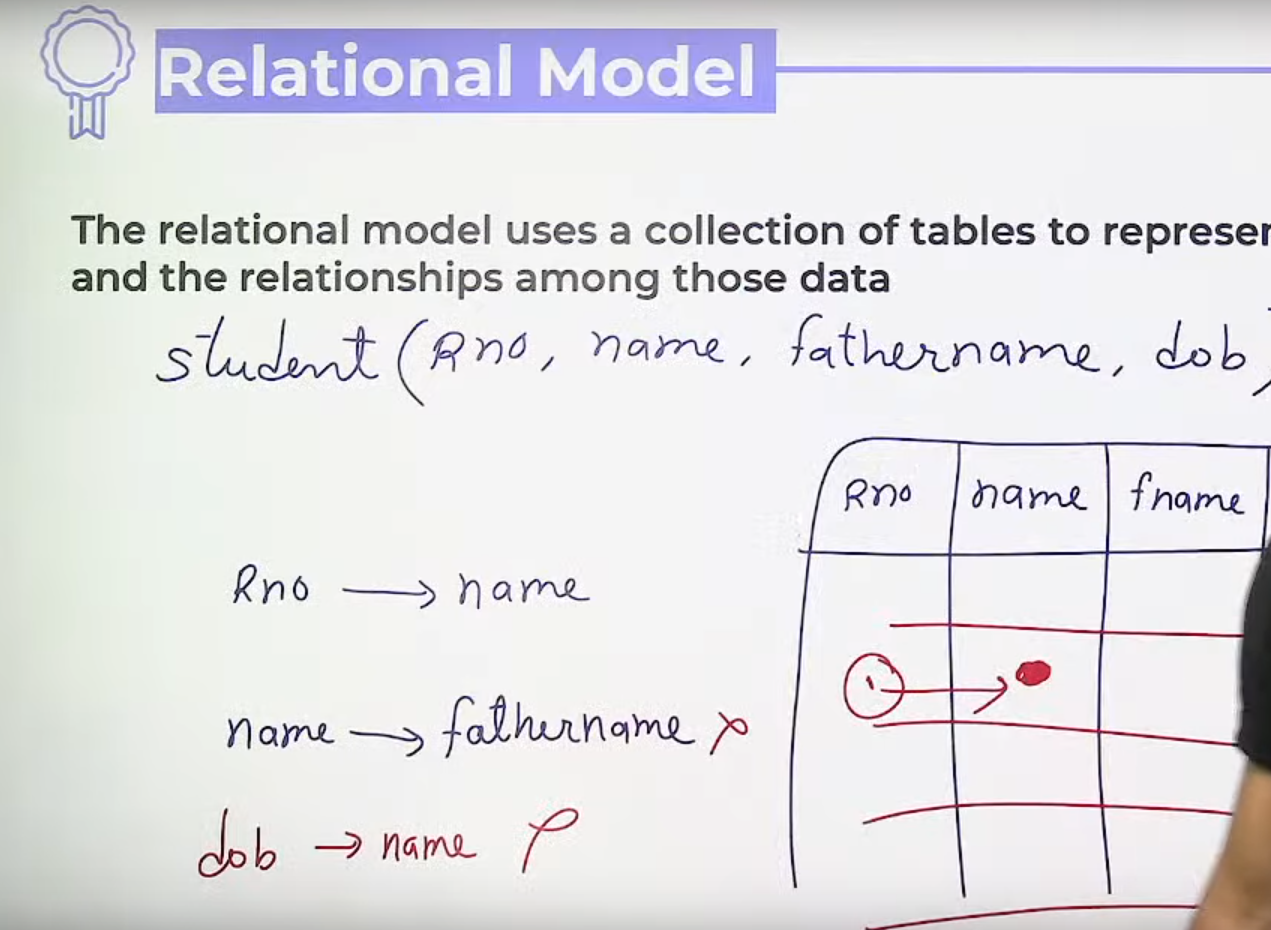 Relational Model
The relational model uses a collection of tables to
and the relationships among those data
student (Rno, name, fathername, dob)
Rno name fname
Rno → name
1 →
name → fathername ×
dob → name